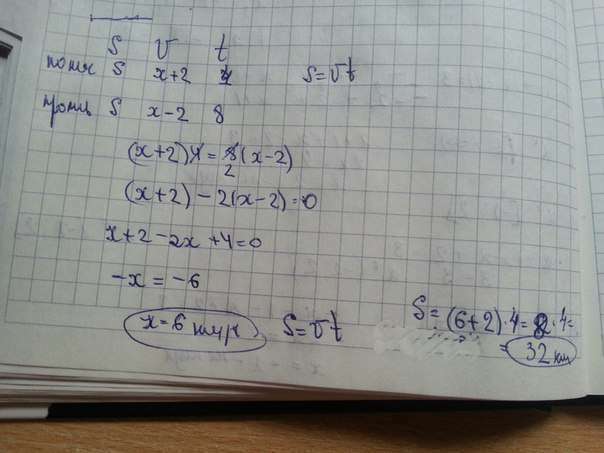 S v t
попл S x+2 4 S=vt
прот S x-2 8
(x+2)4=8(x-2)
2
(x+2)-2(x-2)=0
x+2-2x+4=0
-x=-6
x=6 км/ч S=vt
S=(6+2)·4=8·4=
=32 км